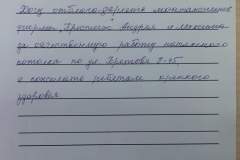 Хочу отблагодарить монтажников
фирмы, Андрея и Максима
за качественную работу натяжного
потолка по ул. 2-45,
и пожелать ребятам крепкого
здоровья